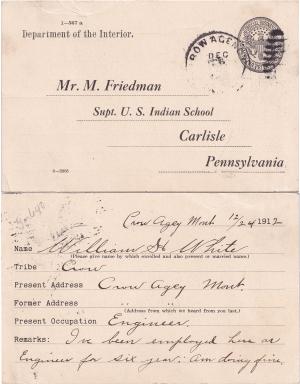 1-567 a
Department of the Interior.
CROW AGENCY
DEC
Mr. M. Friedman
Supt. U. S. Indian School
Carlisle
Pennsylvania
Crow Agey Mont 12/24 1912
Name William H White
(Please give name by which enrolled and also present or married name.)
Tribe Crow
Present Address Crow Agey Mont.
Former Address " " "
(Address from which we heard from you last.)
Present Occupation Engineer.
Remarks: I've been employed here as
Engineer for six year. Am doing fine.